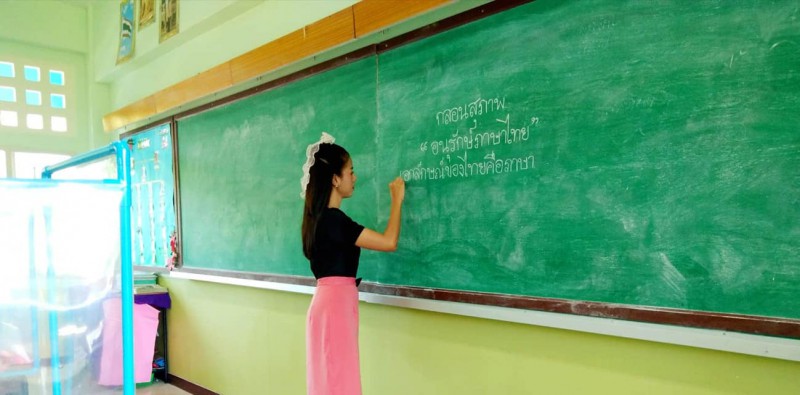 กลอนสุภาพ
“ อนุรักษ์ภาษาไทย”
เอกลักษณ์ของไทยคือภาษา